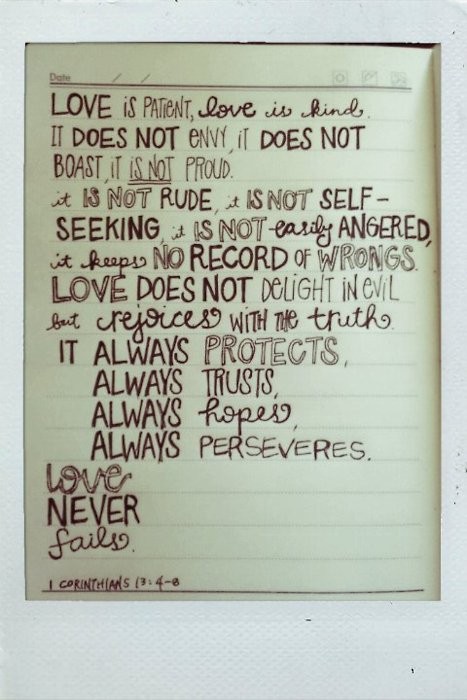 Date / /
LOVE is PATIENT, love is kind.
IT DOES NOT ENVY, iT DOES NOT
BOAST, iT IS NOT PROUD.
it IS NOT RUDE, it IS NOT SELF-
SEEKING, it IS NOT easily ANGERED,
it keeps NO RECORD OF WRONGS.
LOVE DOES NOT DELIGHT IN EVIL
but rejoices WITH THE truth.
IT ALWAYS PROTECTS,
ALWAYS TRUSTS,
ALWAYS hopes,
ALWAYS PERSEVERES.
love
NEVER
fails.
1 CORINTHIANS 13:4-8